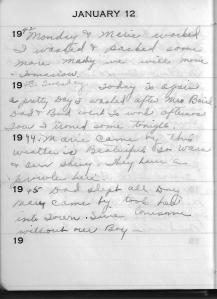 JANUARY 12
1942 Monday & Marie worked
I washed & packed some
more maby we will move
tomorrow.
1943 Tuesday Today is again
a pretty day I washed after Mrs Baird
Dad & Bud went to work afternoon
I ironed some tonight.
1944. Marie Came by this
weather is Beautiful So warm
& sun shiny. They have a
here
1945 Dad slept all Day
Mary came by took
into Town. Sure lonesome
without our Boy -
19